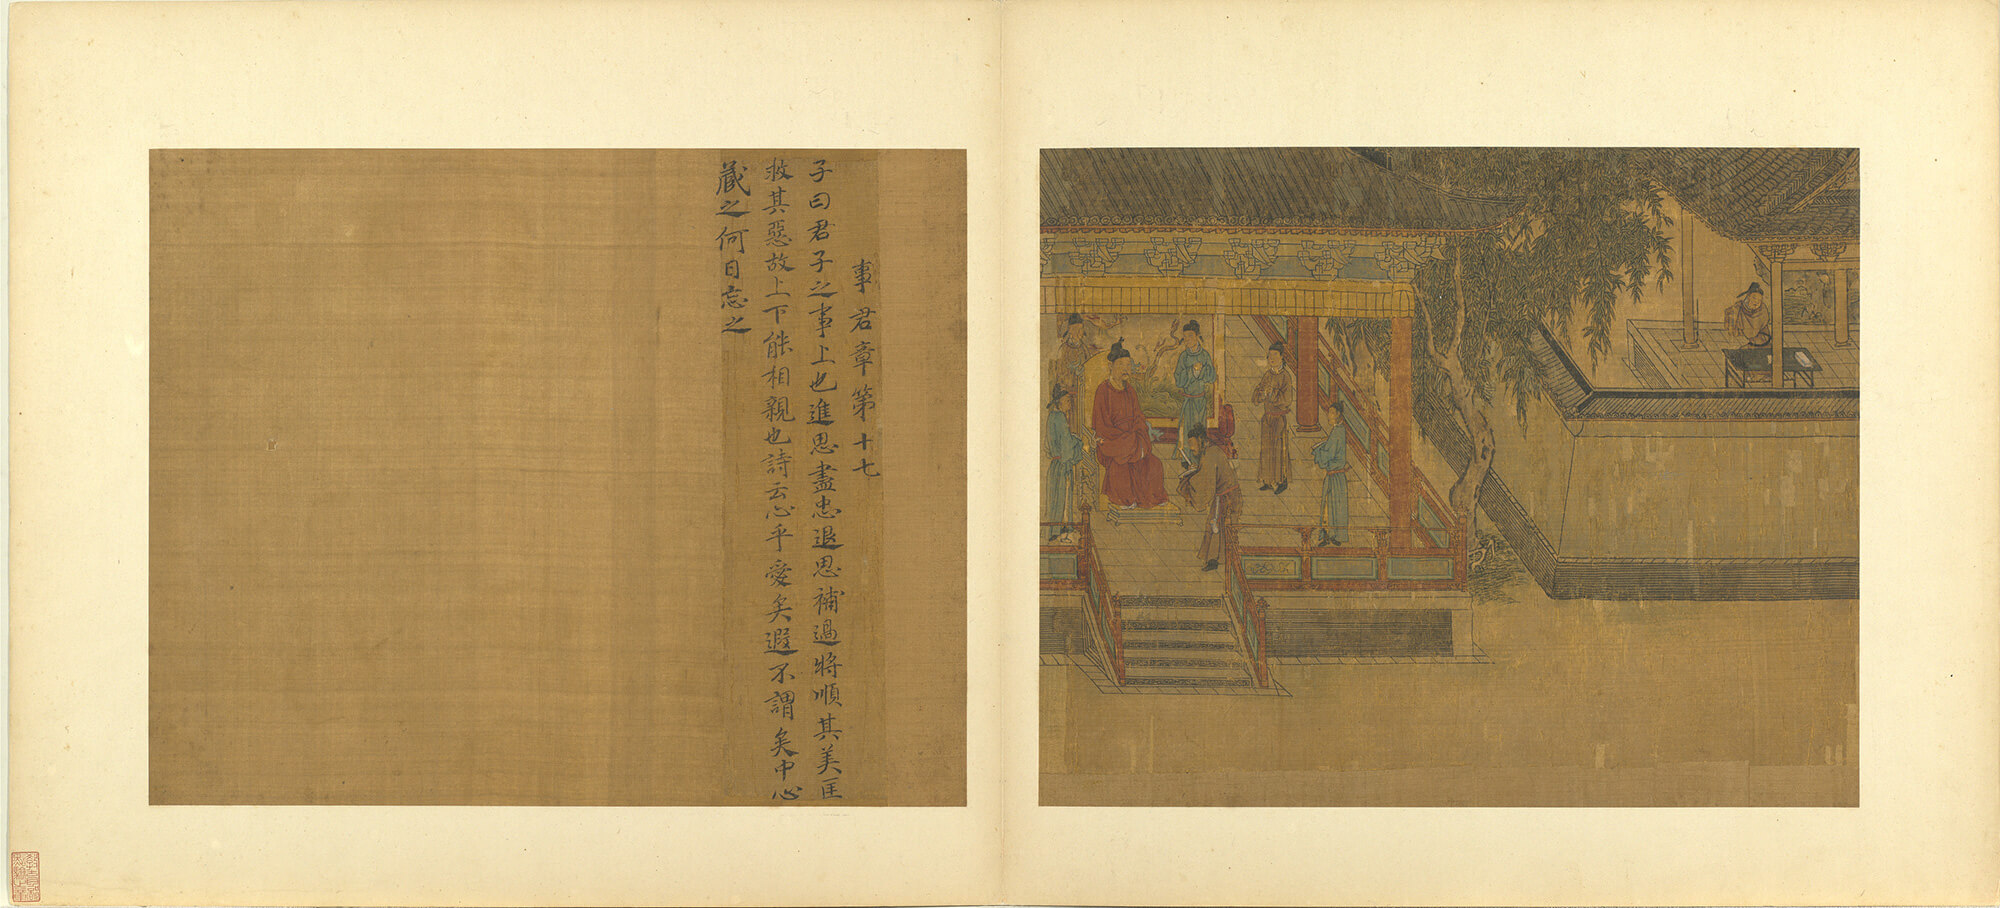 事君章第十七
子曰君子之事上也進思盡忠退思補過將順其美匡
救其惡故上下能相親也詩云心乎愛矣遐不謂矣中心
藏之何日忘之